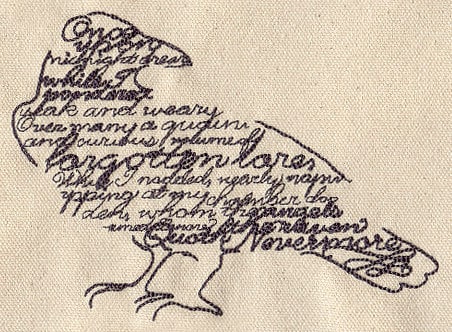 Once
upon
midnight drear
while I
pondered
eak and weary
Over many a quain
and curious volume of
forgotten lore,
While I nodded, nearly
pping at my chamber
whom the angels
Quoth the raven Nevermore